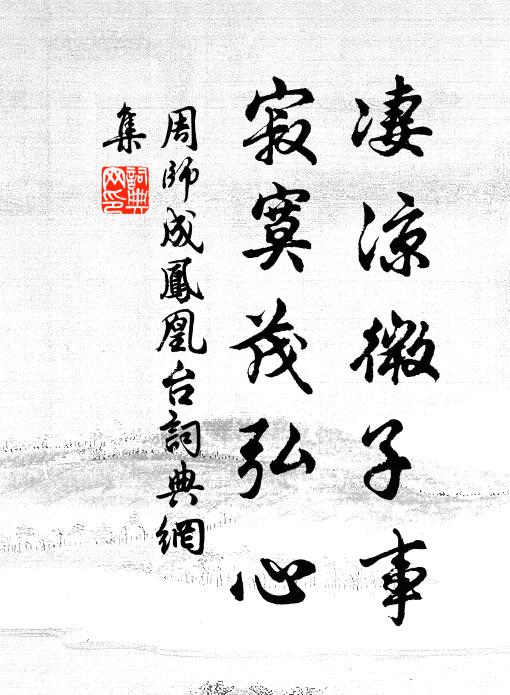 凄涼微子事
寂寞茂弘心
周師成鳳凰台詞典網
集
詞典網印